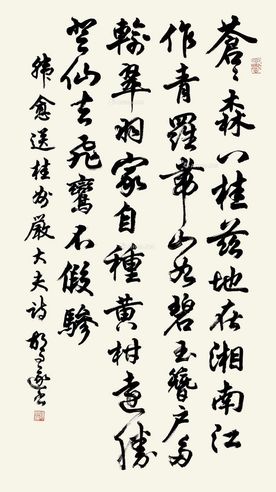 蒼々森八桂茲地在湘南江
作青羅帶山如碧玉簪戶多
輸翠羽家自種黃柑遠勝
登仙去飛鸞不假驂
韓愈送桂州嚴大夫詩